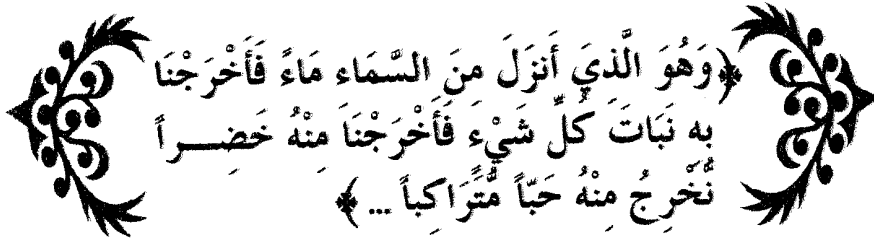 ﴿وَهُوَ الَّذِيَ أَنزَلَ مِنَ السَّمَاءِ مَاءً فَأَخْرَجْنَا
بِهِ نَبَاتَ كُلِّ شَيْءٍ فَأَخْرَجْنَا مِنْهُ خَضِـــراً
نُّخْرِجُ مِنْهُ حَبّاً مُّتَرَاكِباً ... ﴾